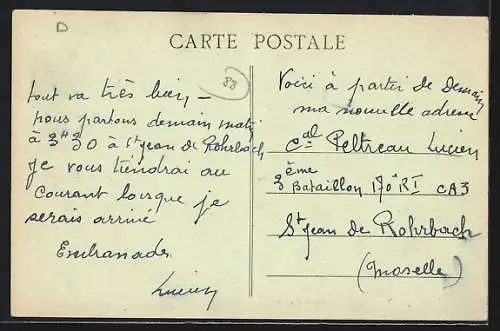 D
CARTE POSTALE
88
tout va très bien –
nous partons demain matin
à 3H30 à St Jean de Rohrbach
Je vous tiendrai au
courant lorsque je
serais arrivé
Lucien
Voici à partir de Demain
ma nouvelle adresse
Cal Peltreau Lucien
3ème Bataillon 170e RI CA3
St Jean de Rohrbach
(Moselle)